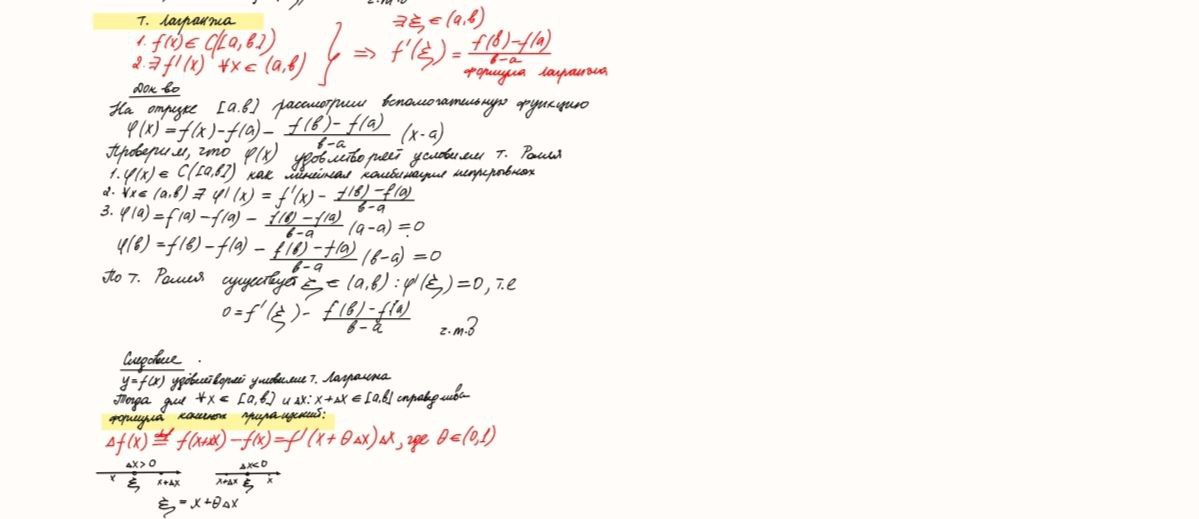 т. Лагранжа
1. f(x) ∈ C([a,b])
2. ∃ f'(x) ∀x ∈ (a,b) } ⇒ ∃ ξ ∈ (a,b) f'(ξ) = (f(b)-f(a))/(b-a)
формула Лагранжа
Док-во
На отрезке [a,b] рассмотрим вспомогательную функцию
φ(x) = f(x) - f(a) - (f(b) - f(a))/(b-a) (x-a)
Проверим, что φ(x) удовлетворяет условиям т. Ролля
1. φ(x) ∈ C([a,b]) как линейная комбинация непрерывных
2. ∀x ∈ (a,b) ∃ φ'(x) = f'(x) - (f(b)-f(a))/(b-a)
3. φ(a) = f(a) - f(a) - (f(b)-f(a))/(b-a) (a-a) = 0
φ(b) = f(b) - f(a) - (f(b)-f(a))/(b-a) (b-a) = 0
По т. Ролля существует ξ ∈ (a,b) : φ'(ξ) = 0, т.е
0 = f'(ξ) - (f(b)-f(a))/(b-a)
ч.т.д
Следствие
y = f(x) удовлетворяет условиям т. Лагранжа
Тогда для ∀x ∈ [a,b] и Δx: x+Δx ∈ [a,b] справедлива
формула конечных приращений:
Δf(x) ≝ f(x+Δx) - f(x) = f'(x+θΔx)Δx, где θ ∈ (0,1)
Δx>0 Δx<0
x ξ x+Δx x+Δx ξ x
ξ = x+θΔx